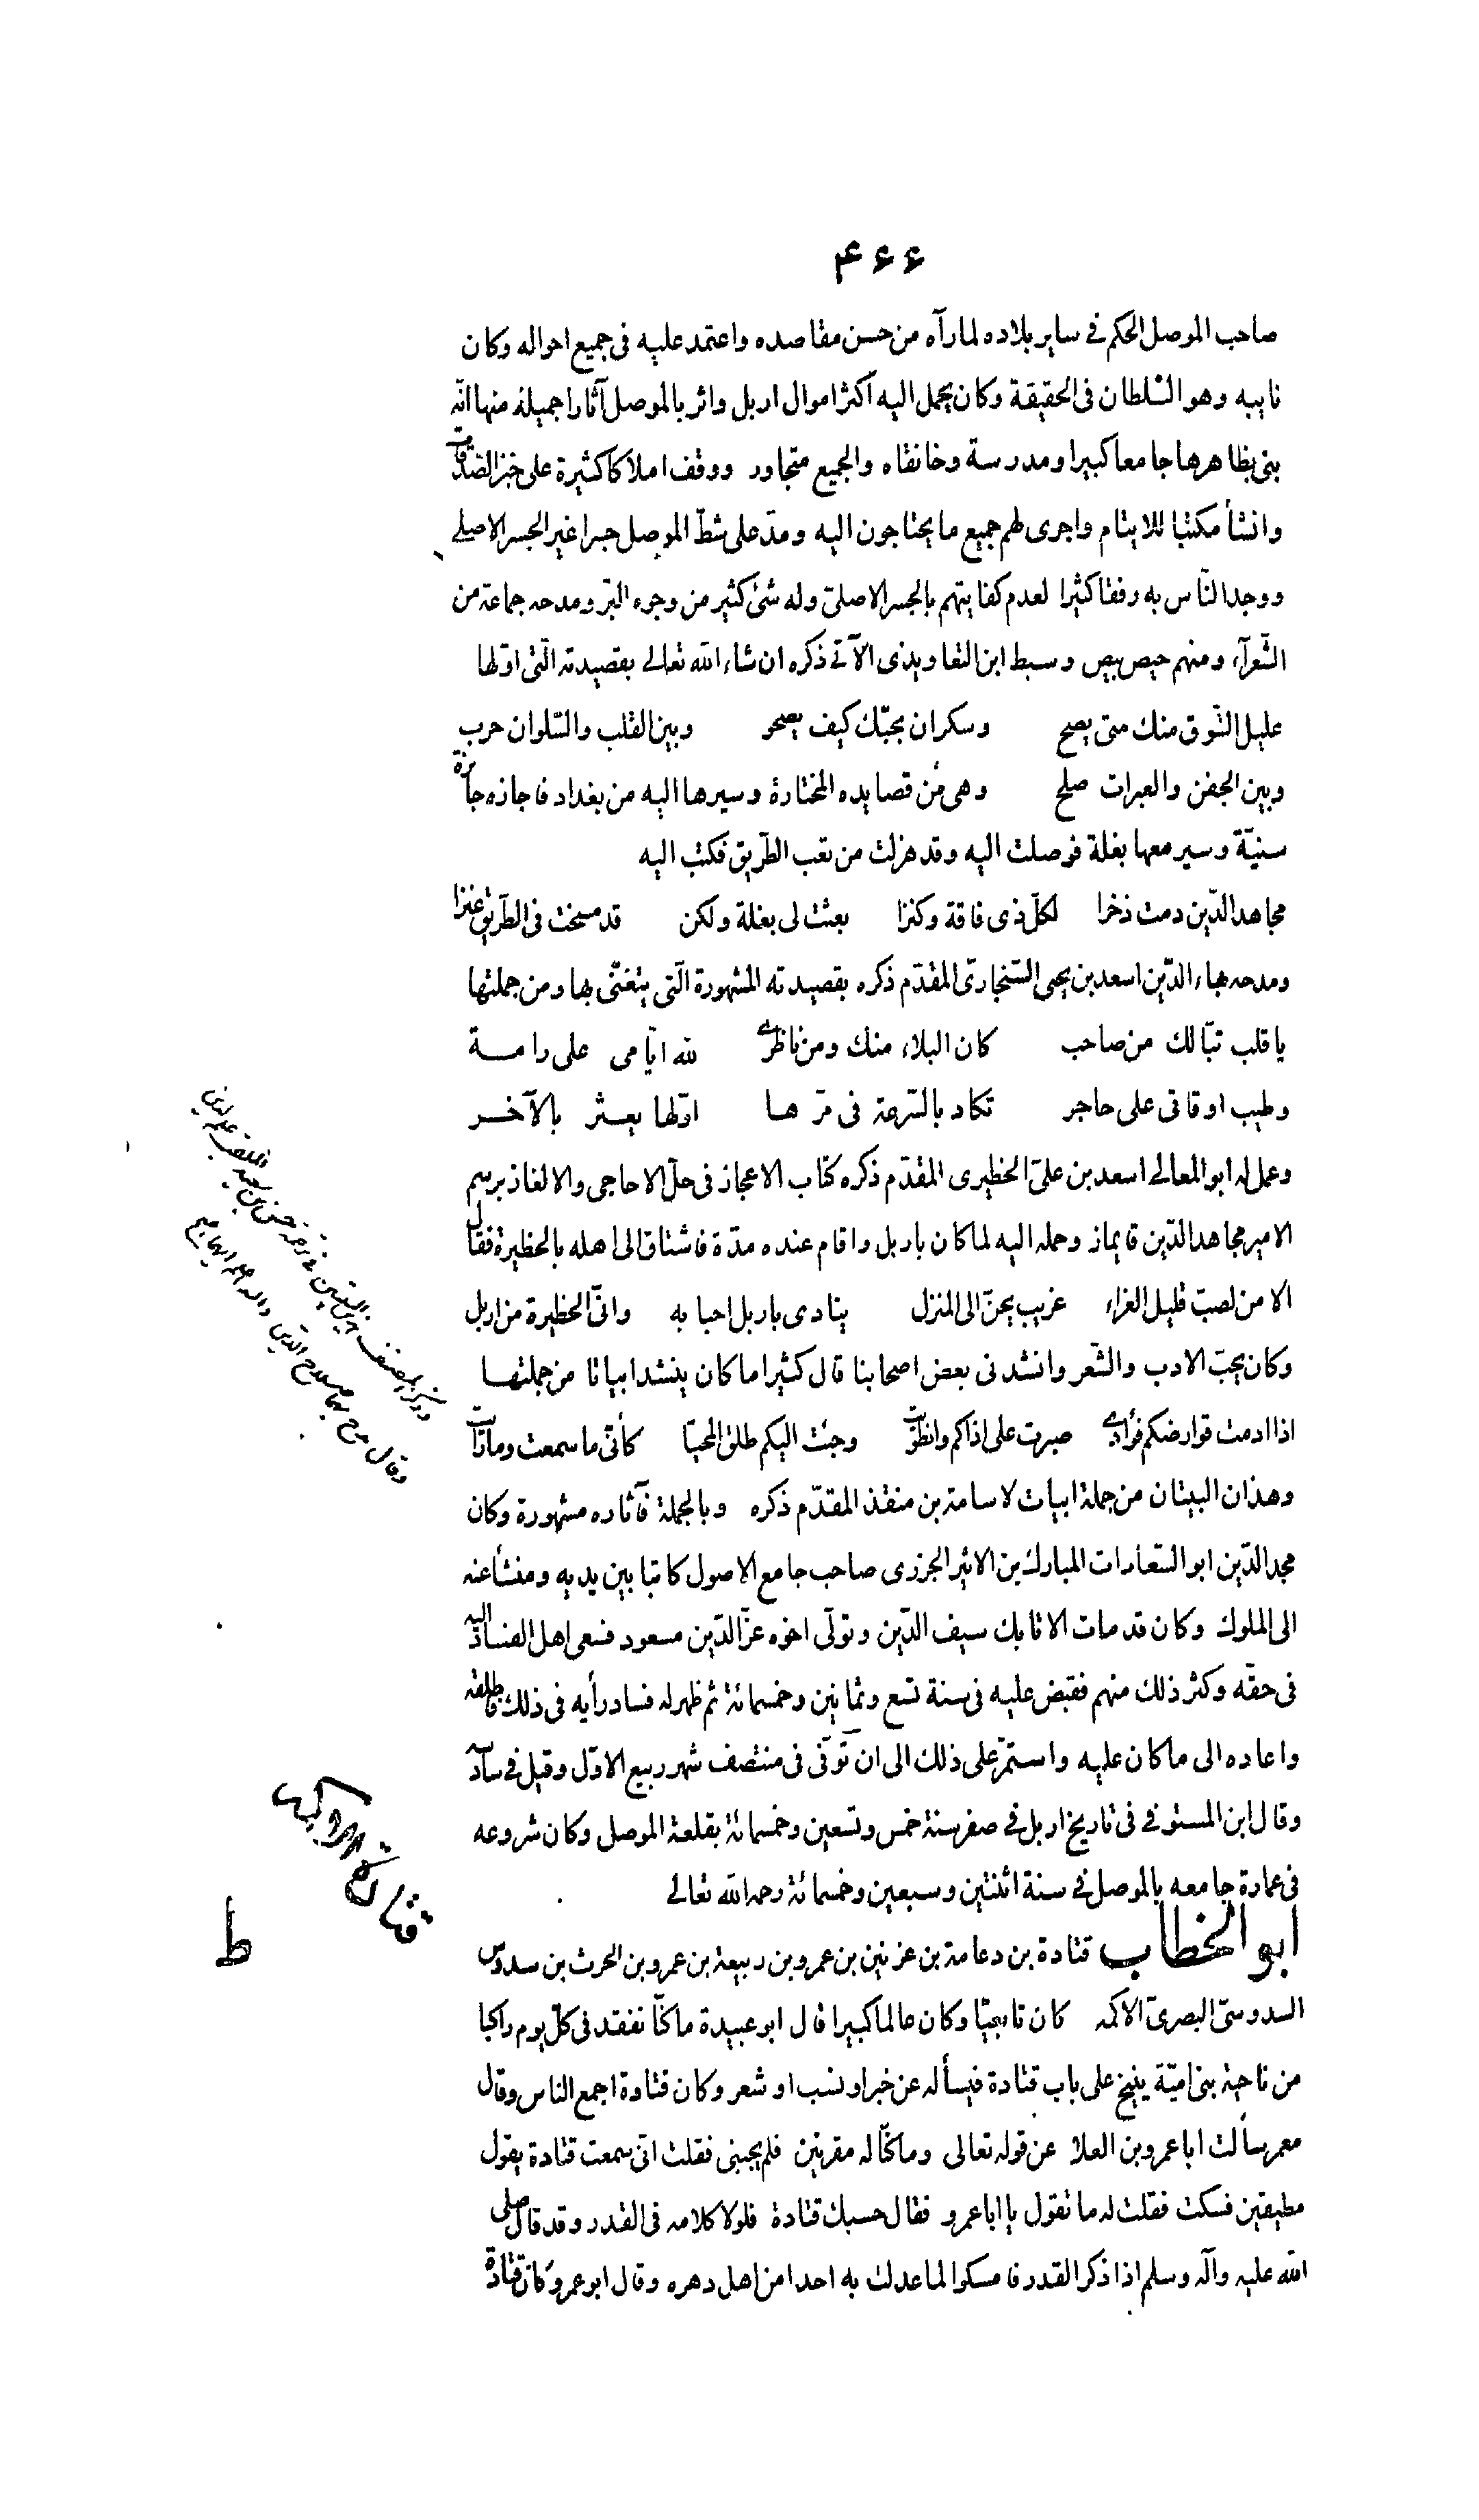 ۴۶۶
صاحب الموصل الحكم فى ساير بلاده لما رآه من حسن مقاصده واعتمد عليه فى جميع احواله وكان
نايبه وهو السّلطان فى الحقيقة وكان يحمل اليه اكثر اموال اربل واثر بالموصل آثارا جميلة منها انّه
بنى بظاهرها جامعا كبيرا ومدرسة وخانقاه والجميع متجاور ووقف املاكا كثيرة على خبز الصّدقات
وانشأ مكتبا للايتام واجرى لهم جميع ما يحتاجون اليه ومدّ على شطّ الموصل جسرا غير الجسر الاصلى
ووجد النّاس به رفقا كثيرا لعدم كفايتهم بالجسر الاصلىّ وله شئ كثير من وجوه البرّ ومدحه جماعة من
الشّعرآء ومنهم حيص بيص وسبط ابن التعاويذى الآتى ذكره ان شاء الله تعالى بقصيدته الّتى اوّلها
عليل الشّوق منك متى يصح وسكران بحبّك كيف يصحو وبين القلب والسّلوان حرب
وبين الجفن والعبرات صلح وهى من قصايده المختارة وسيرها اليه من بغداد فاجازه جائزة
سنيّة وسير معها بغلة فوصلت اليه وقد هزلت من تعب الطّريق فكتب اليه
مجاهد الدّين دمت ذخرا لكلّ ذى فاقة وكنزا بعثت لى بغلة ولكن قد مسخت فى الطّريق عنزا
ومدحه بهاء الدّين اسعد بن يحيى السّنجارىّ المقدّم ذكره بقصيدته المشهورة الّتى يتغنّى بها ومن جملتها
يا قلب تبّا لك من صاحب كان البلاء منك ومن ناظرى لله ايّامى على رامة
وطيب اوقاتى على حاجر تكاد بالسّرعة فى مرّها اوّلها يعثر بالآخر
وعمل له ابو المعالى اسعد بن علىّ الحظيرى المقدّم ذكره كتاب الاعجاز فى حلّ الاحاجى والالغاز برسم
الامير مجاهد الدّين قايماز وحمله اليه لما كان باربل واقام عنده مدّة فاشتاق الى اهله بالحظيرة فقال
الا من لصبّ قليل العزاء غريب يحنّ الى المنزل ينادى باربل احبابه وانّى الحظيرة من اربل
وكان يحبّ الادب والشّعر وانشدنى بعض اصحابنا قال كثيرا ما كان ينشد ابياتا من جملتها
اذا ادمت قوارضكم فؤادى صبرت على اذاكم وانطويت وجئت اليكم طلق المحيّا كأنّى ما سمعت وما رأيت
وهذان البيتان من جملة ابيات لاسامة بن منقذ المقدّم ذكره وبالجملة فآثاره مشهورة وكان
مجد الدّين ابو السّعادات المبارك بن الاثير الجزرى صاحب جامع الاصول كاتبا بين يديه ومنشأ عنه
الى الملوك وكان قد مات الاتابك سيف الدّين وتولّى اخوه عزّ الدّين مسعود فسعى اهل الفساد اليه
فى حقّه وكثر ذلك منهم فقبض عليه فى سنة تسع وثمانين وخمسمائة ثم ظهر له فساد رأيه فى ذلك فاطلقه
واعاده الى ما كان عليه واستمرّ على ذلك الى ان توفّى فى منتصف شهر ربيع الاوّل وقيل فى سادسه
وقال ابن المستوفى فى تاريخ اربل فى صفر سنة خمس وتسعين وخمسمائة بقلعة الموصل وكان شروعه
فى عمارة جامعه بالموصل فى سنة اثنتين وسبعين وخمسمائة رحمه الله تعالى
ابو الخطاب قتادة بن دعامة بن عزيز بن عمرو بن ربيعة بن عمرو بن الحرث بن سدوس
السدوسىّ البصرىّ الاكمه كان تابعيّا وكان عالما كبيرا قال ابو عبيدة ما كنّا نفقد فى كلّ يوم راكبا
من ناحية بنى اميّة ينيخ على باب قتادة فيسأله عن خبر او نسب او شعر وكان قتادة اجمع الناس وقال
معمر سألت ابا عمرو بن العلا عن قوله تعالى وما كنّا له مقرنين فلم يجبنى فقلت انّى سمعت قتادة يقول
مطيقين فسكت فقلت له ما تقول يا ابا عمرو فقال حسبك قتادة فلولا كلامه فى القدر وقد قال صلى
الله عليه وآله وسلم اذا ذكر القدر فامسكوا لما عدلت به احدا من اهل دهره وقال ابو عمرو كان قتادة
قتادة الاكمه
ط